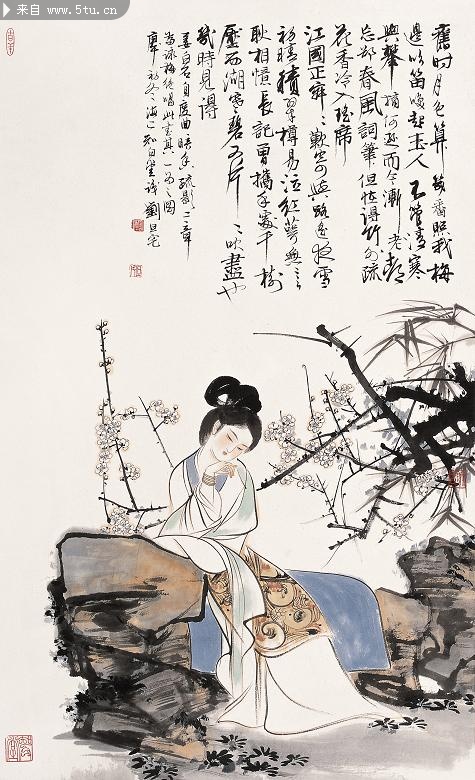 来自 www.5tu.cn
舊時月色算幾番照我梅
邊吹笛喚起玉人不管清寒
與攀摘何遜而今漸老都
忘卻春風詞筆但怪得竹外疏
花香冷入瑤席
江國正寂〻歎寄與路遙夜雪
初積翠樽易泣紅萼無言
耿相憶長記曾攜手處千樹
壓西湖寒碧又片〻吹盡也
幾時見得
姜白石自度曲暗香疏影二章
詠梅絕唱此寫其一
海上知白堂 劉旦宅